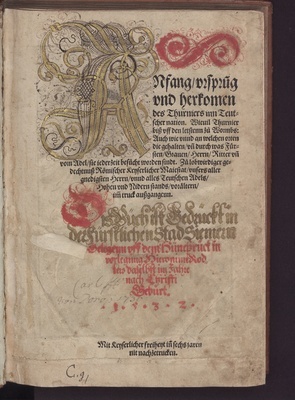 Anfang/ vrsprūg
vnd herkomen
des Thurniers inn Teut-
scher nation. Wieuil Thurnier
biß vff den letstenn zů Wormbs/
Auch wie vnnd an welchen orten
die gehalten/ vñ durch was Für-
sten/ Grauen/ Herrn/ Ritter vñ
vom Adel/ sie ieder zeit besůcht worden sindt. Zů lobwirdiger ge-
dechtnuß Römischer Keyserlicher Maiestat/ vnsers aller
gnedigsten Herrn/ vnnd alles Teutschen Adels/
Hohen vnd Nidern stands/ voråltern/
inn truck außgangenn.
Diß Bůch ist Gedruckt in
der Fürstlichen Stad Siemern
vff dem Hunesruck in
verlegung Hieronimi Rod-
lers daselbst im Jahre
nach Christi
Geburt.
1 5 3 2
Mit Keyserlicher freiheyt iñ sechs jaren
nit nachzetrucken.